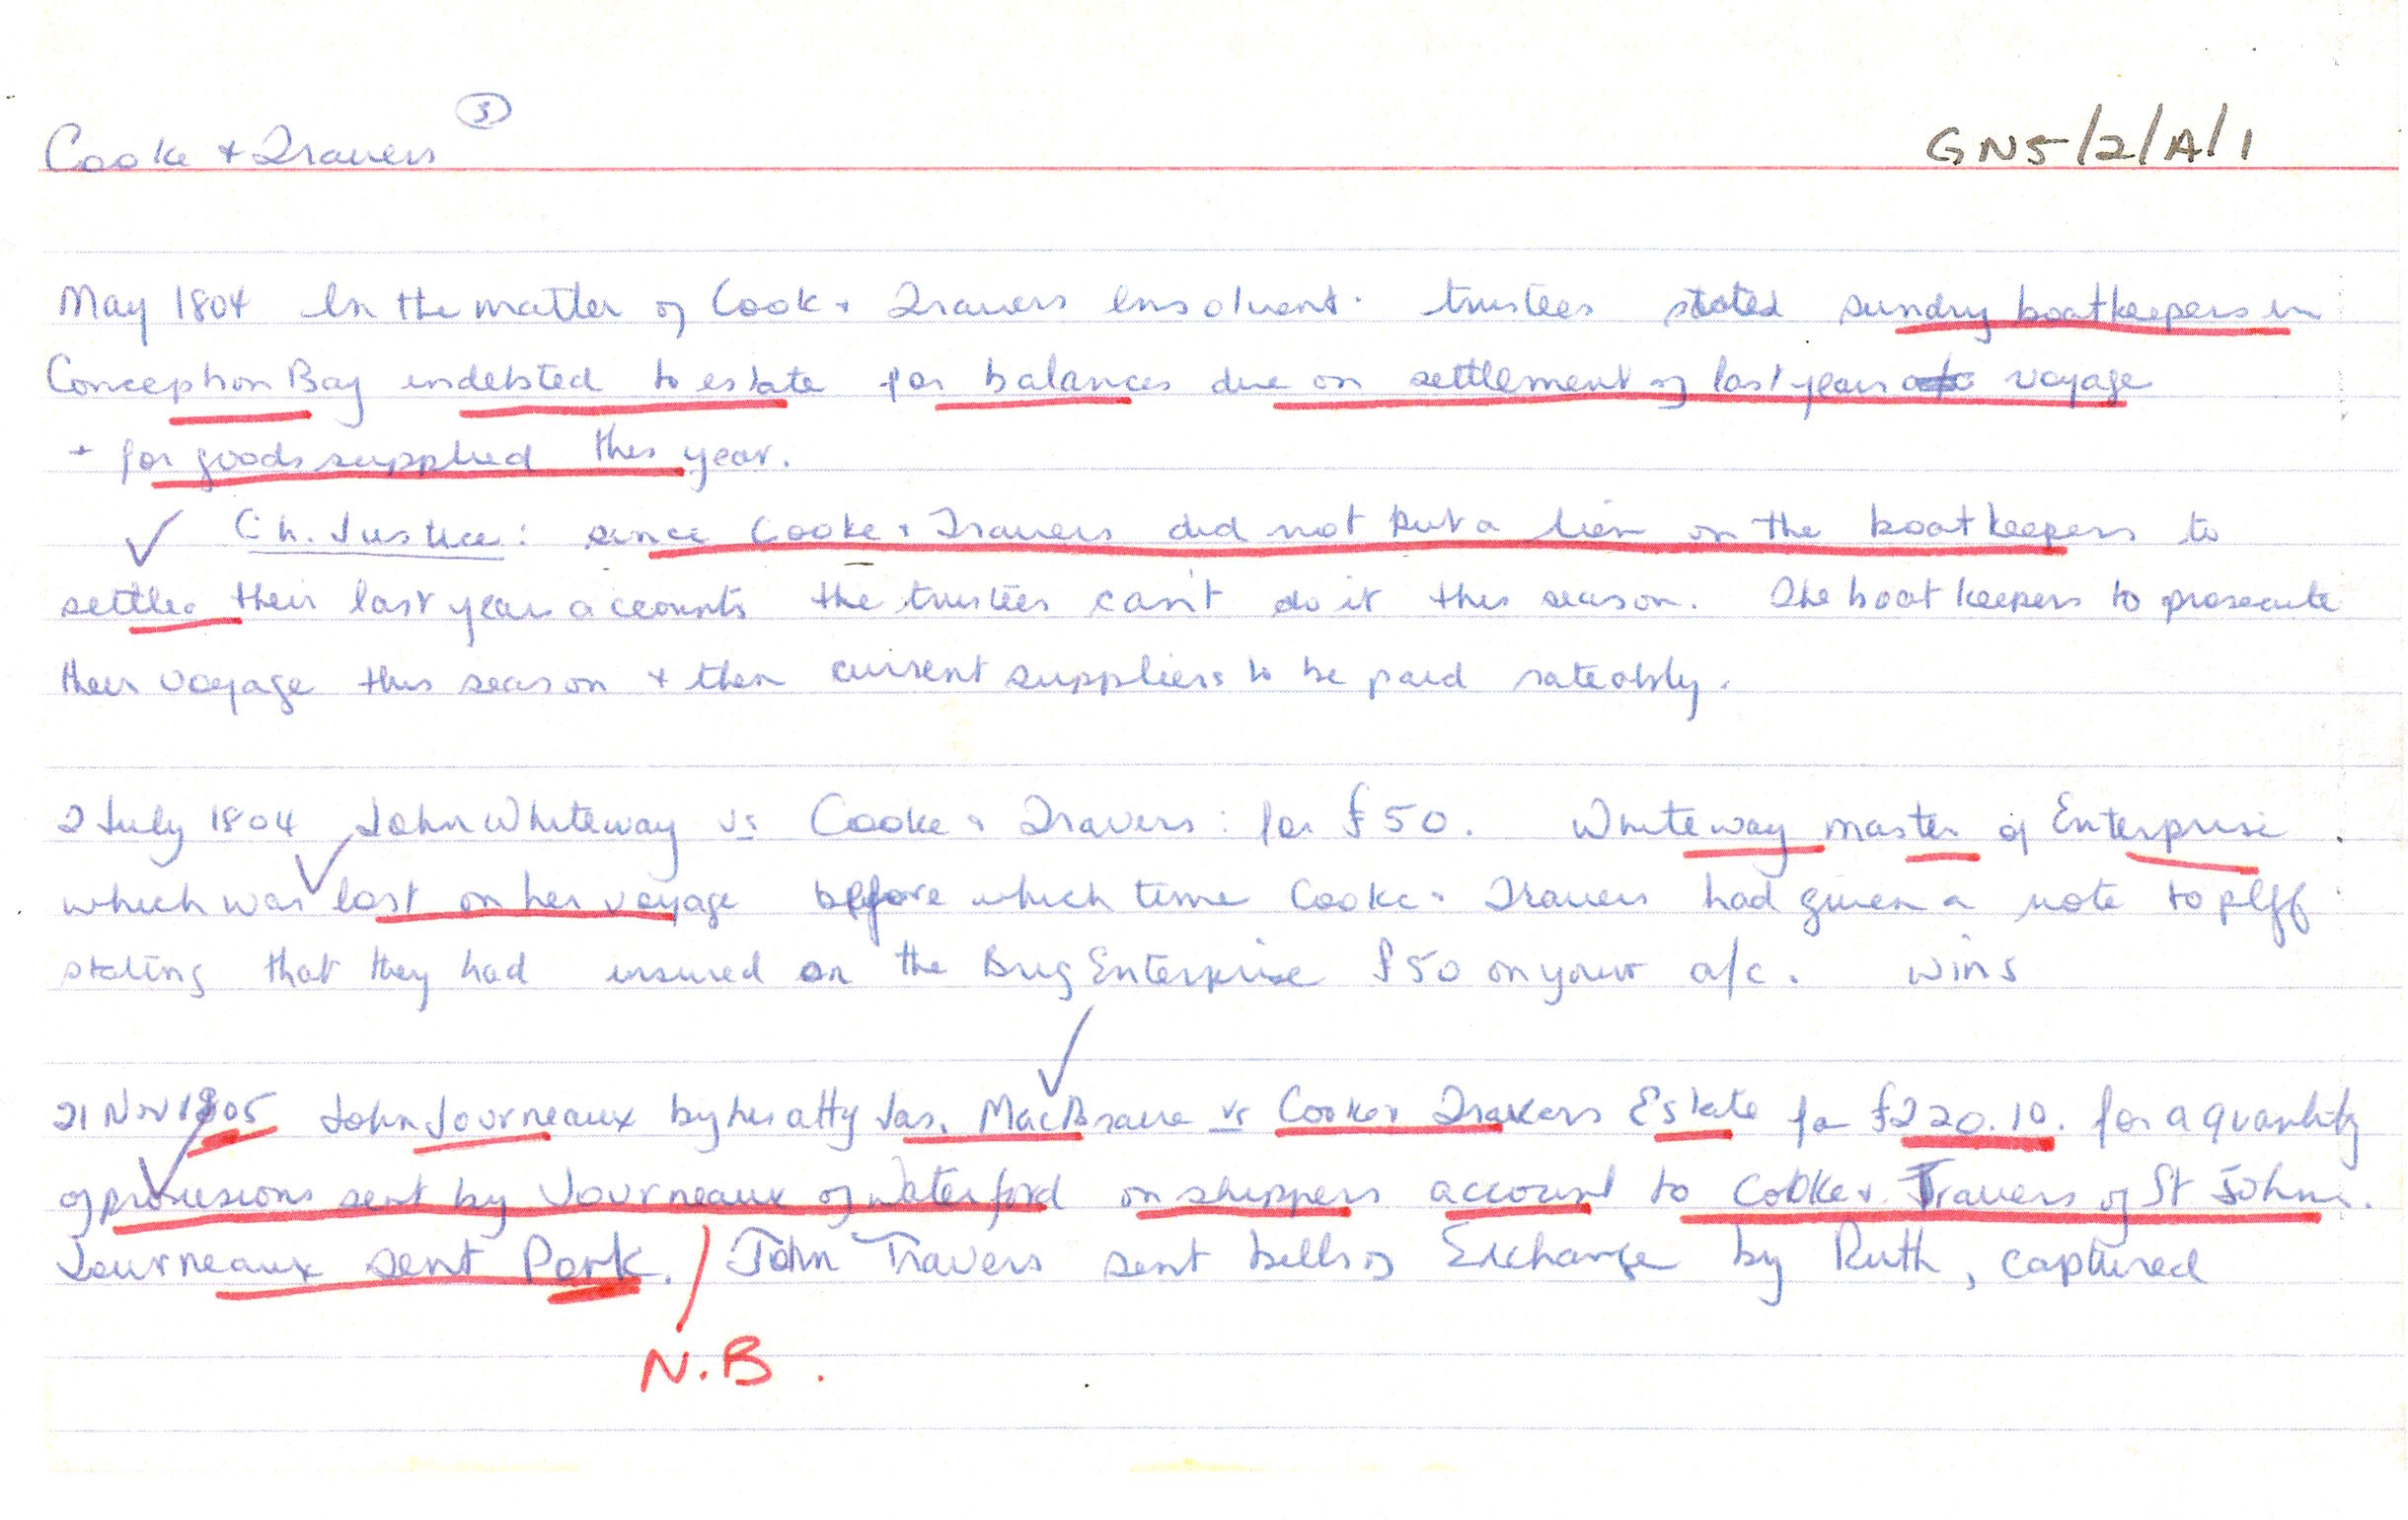 Cooke + Travers ③ GN5/2/A/1
May 1804 In the matter of Cook + Travers Insolvent. trustees stated sundry boatkeepers in
Conception Bay indebted to estate for balances due on settlement of last years voyage
+ for goods supplied this year.
Ch. Justice: since Cooke + Travers did not put a lien on the boatkeepers to
settle their last years accounts the trustees can't do it this season. The boatkeepers to prosecute
their voyage this season + then current suppliers to be paid rateably.
2 July 1804 John Whiteway vs Cooke + Travers: for £50. Whiteway master of Enterprise
which was lost on her voyage before which time Cooke + Travers had given a note to plff
stating that they had insured on the Brig Enterprise £50 on your a/c. wins
21 Nov 1805 John Journeaux by his atty Jas. MacBraire vs Cooke + Travers Estate for £220.10. for a quantity
of provisions sent by Journeaux of Waterford on shippers account to Cooke + Travers of St John.
Journeaux sent Pork. / John Travers sent bills of Exchange by Ruth, captured
N.B.